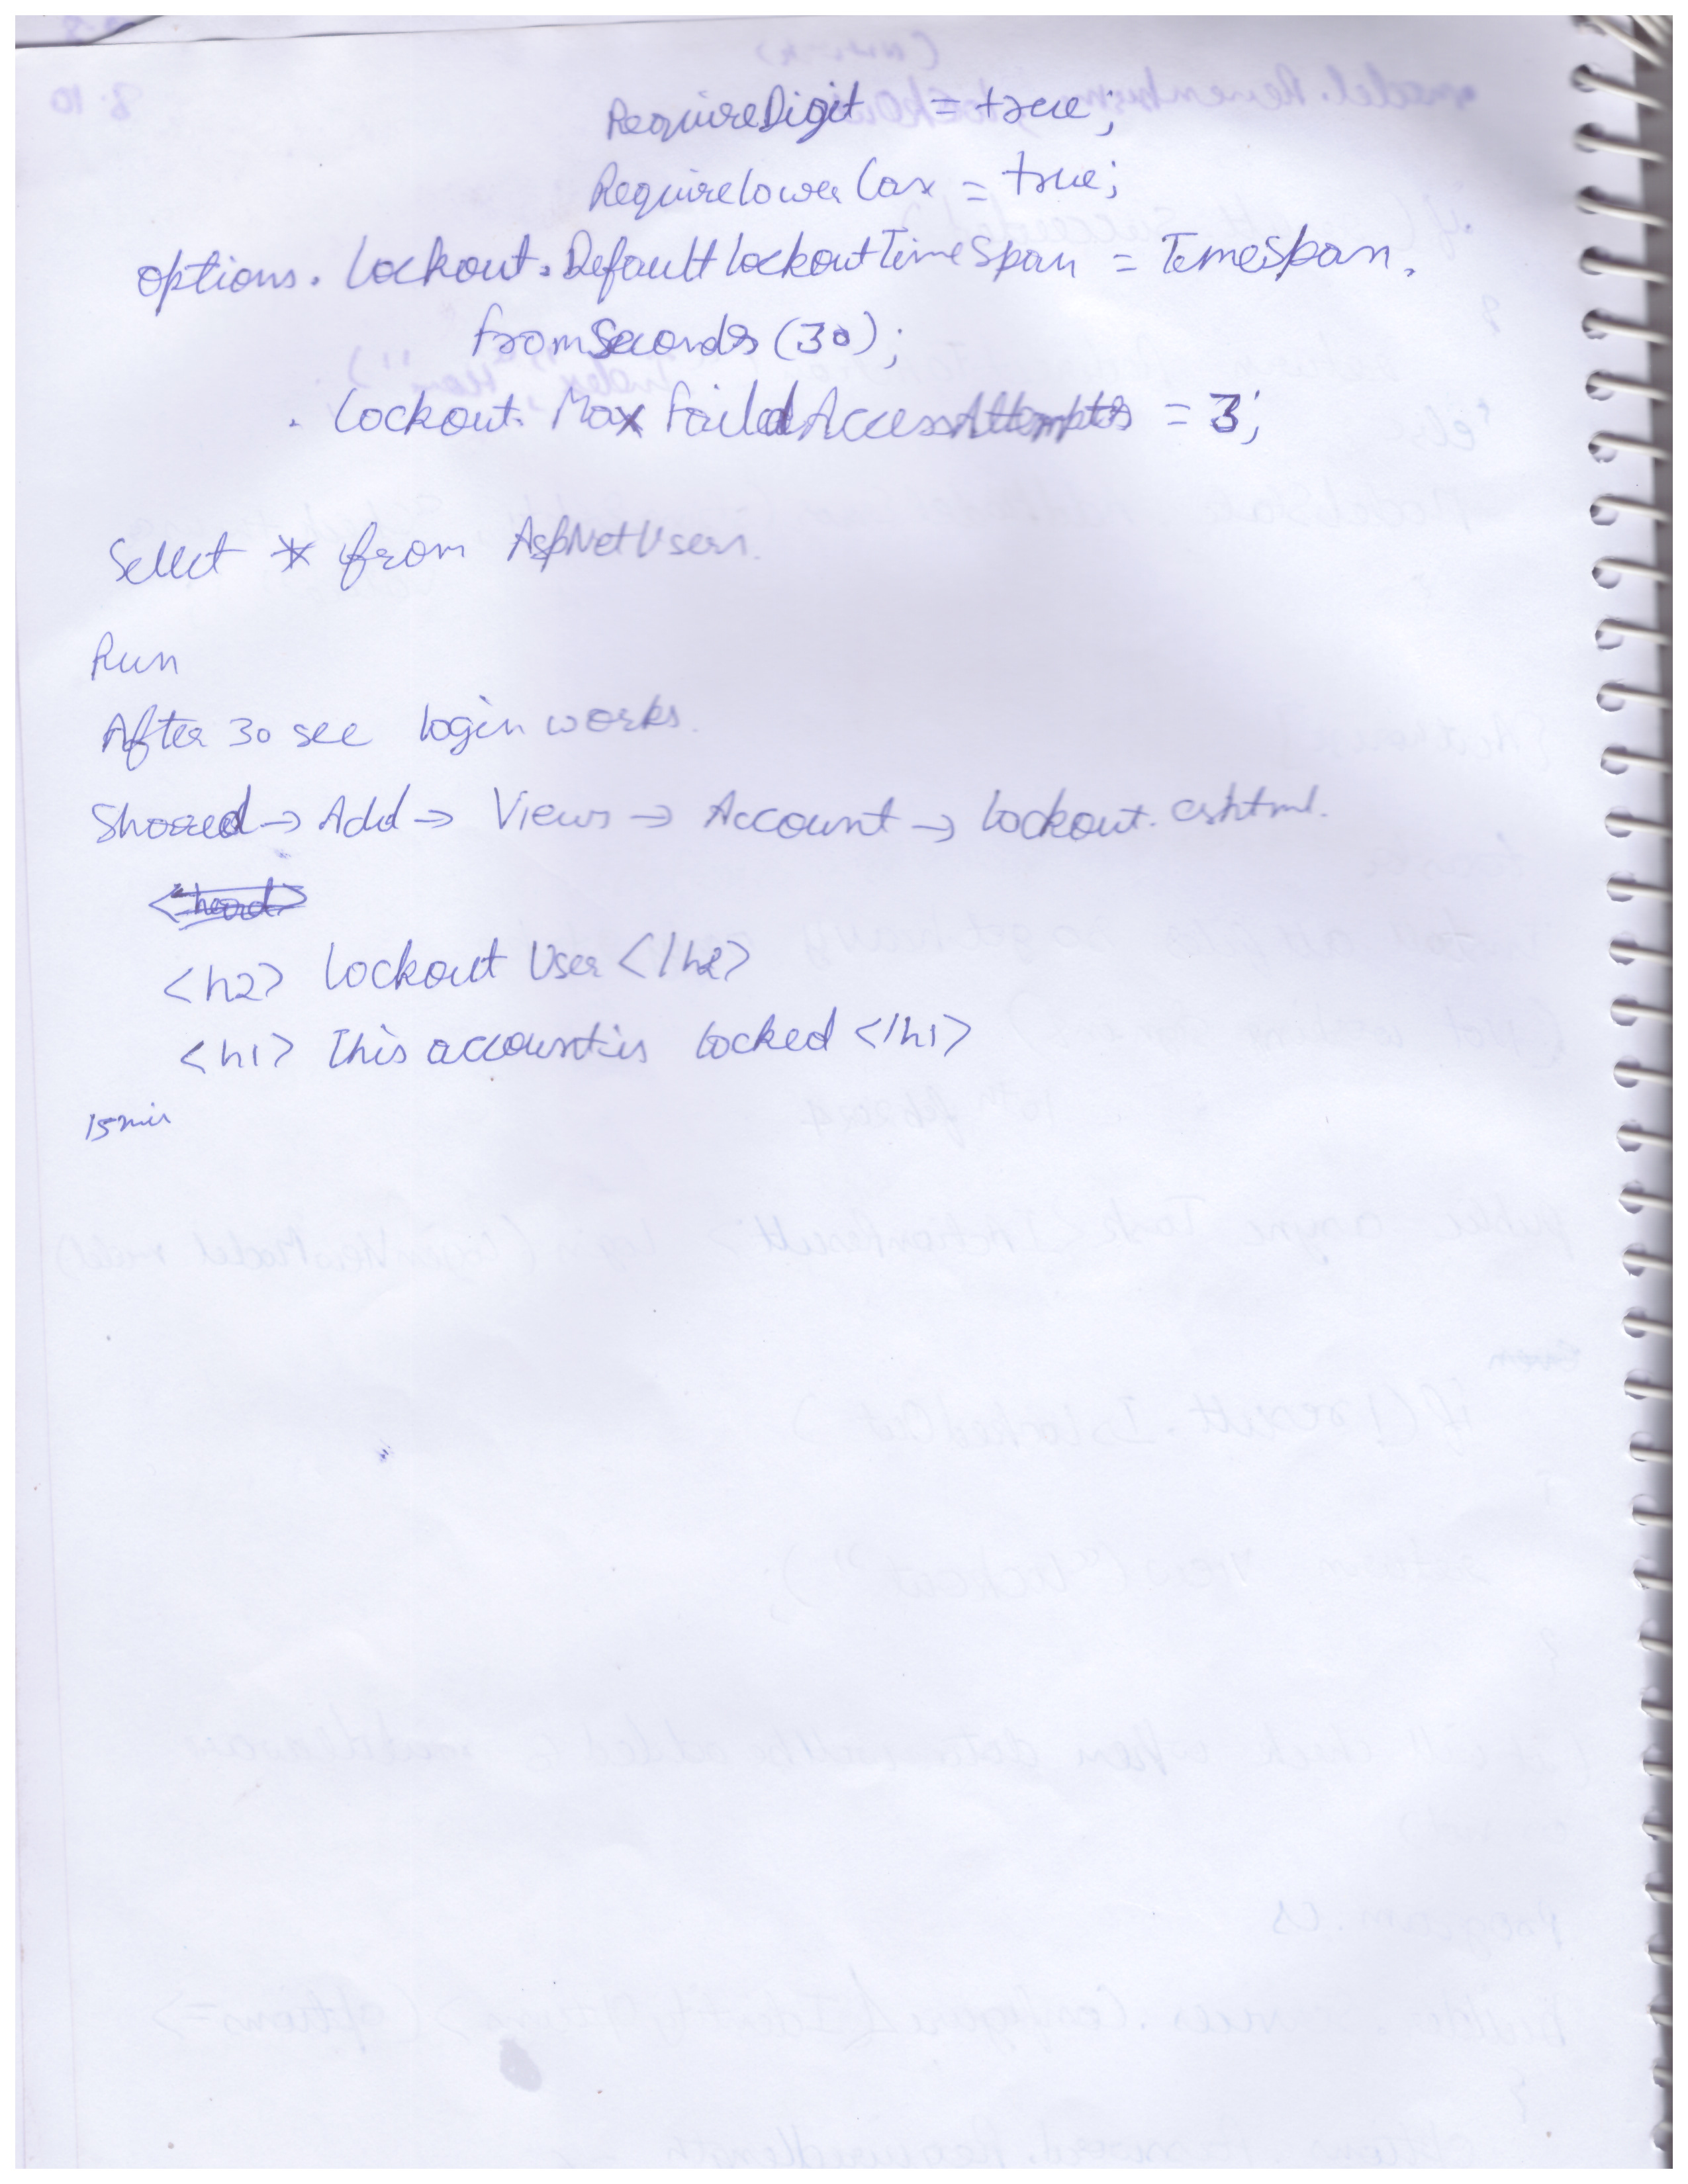 RequireDigit = true;
RequirelowerCase = true;
options. Lockout. DefaultLockoutTimeSpan = TimeSpan.
fromSeconds (30);
. Lockout. MaxFaildAccessAttempts = 3;
Select * from AspNetUsers.
Run
After 30 sec login works.
Shared → Add → Views → Account → Lockout. cshtml.
<h2> Lockout User </h2>
<h1> This account is locked </h1>
15 min